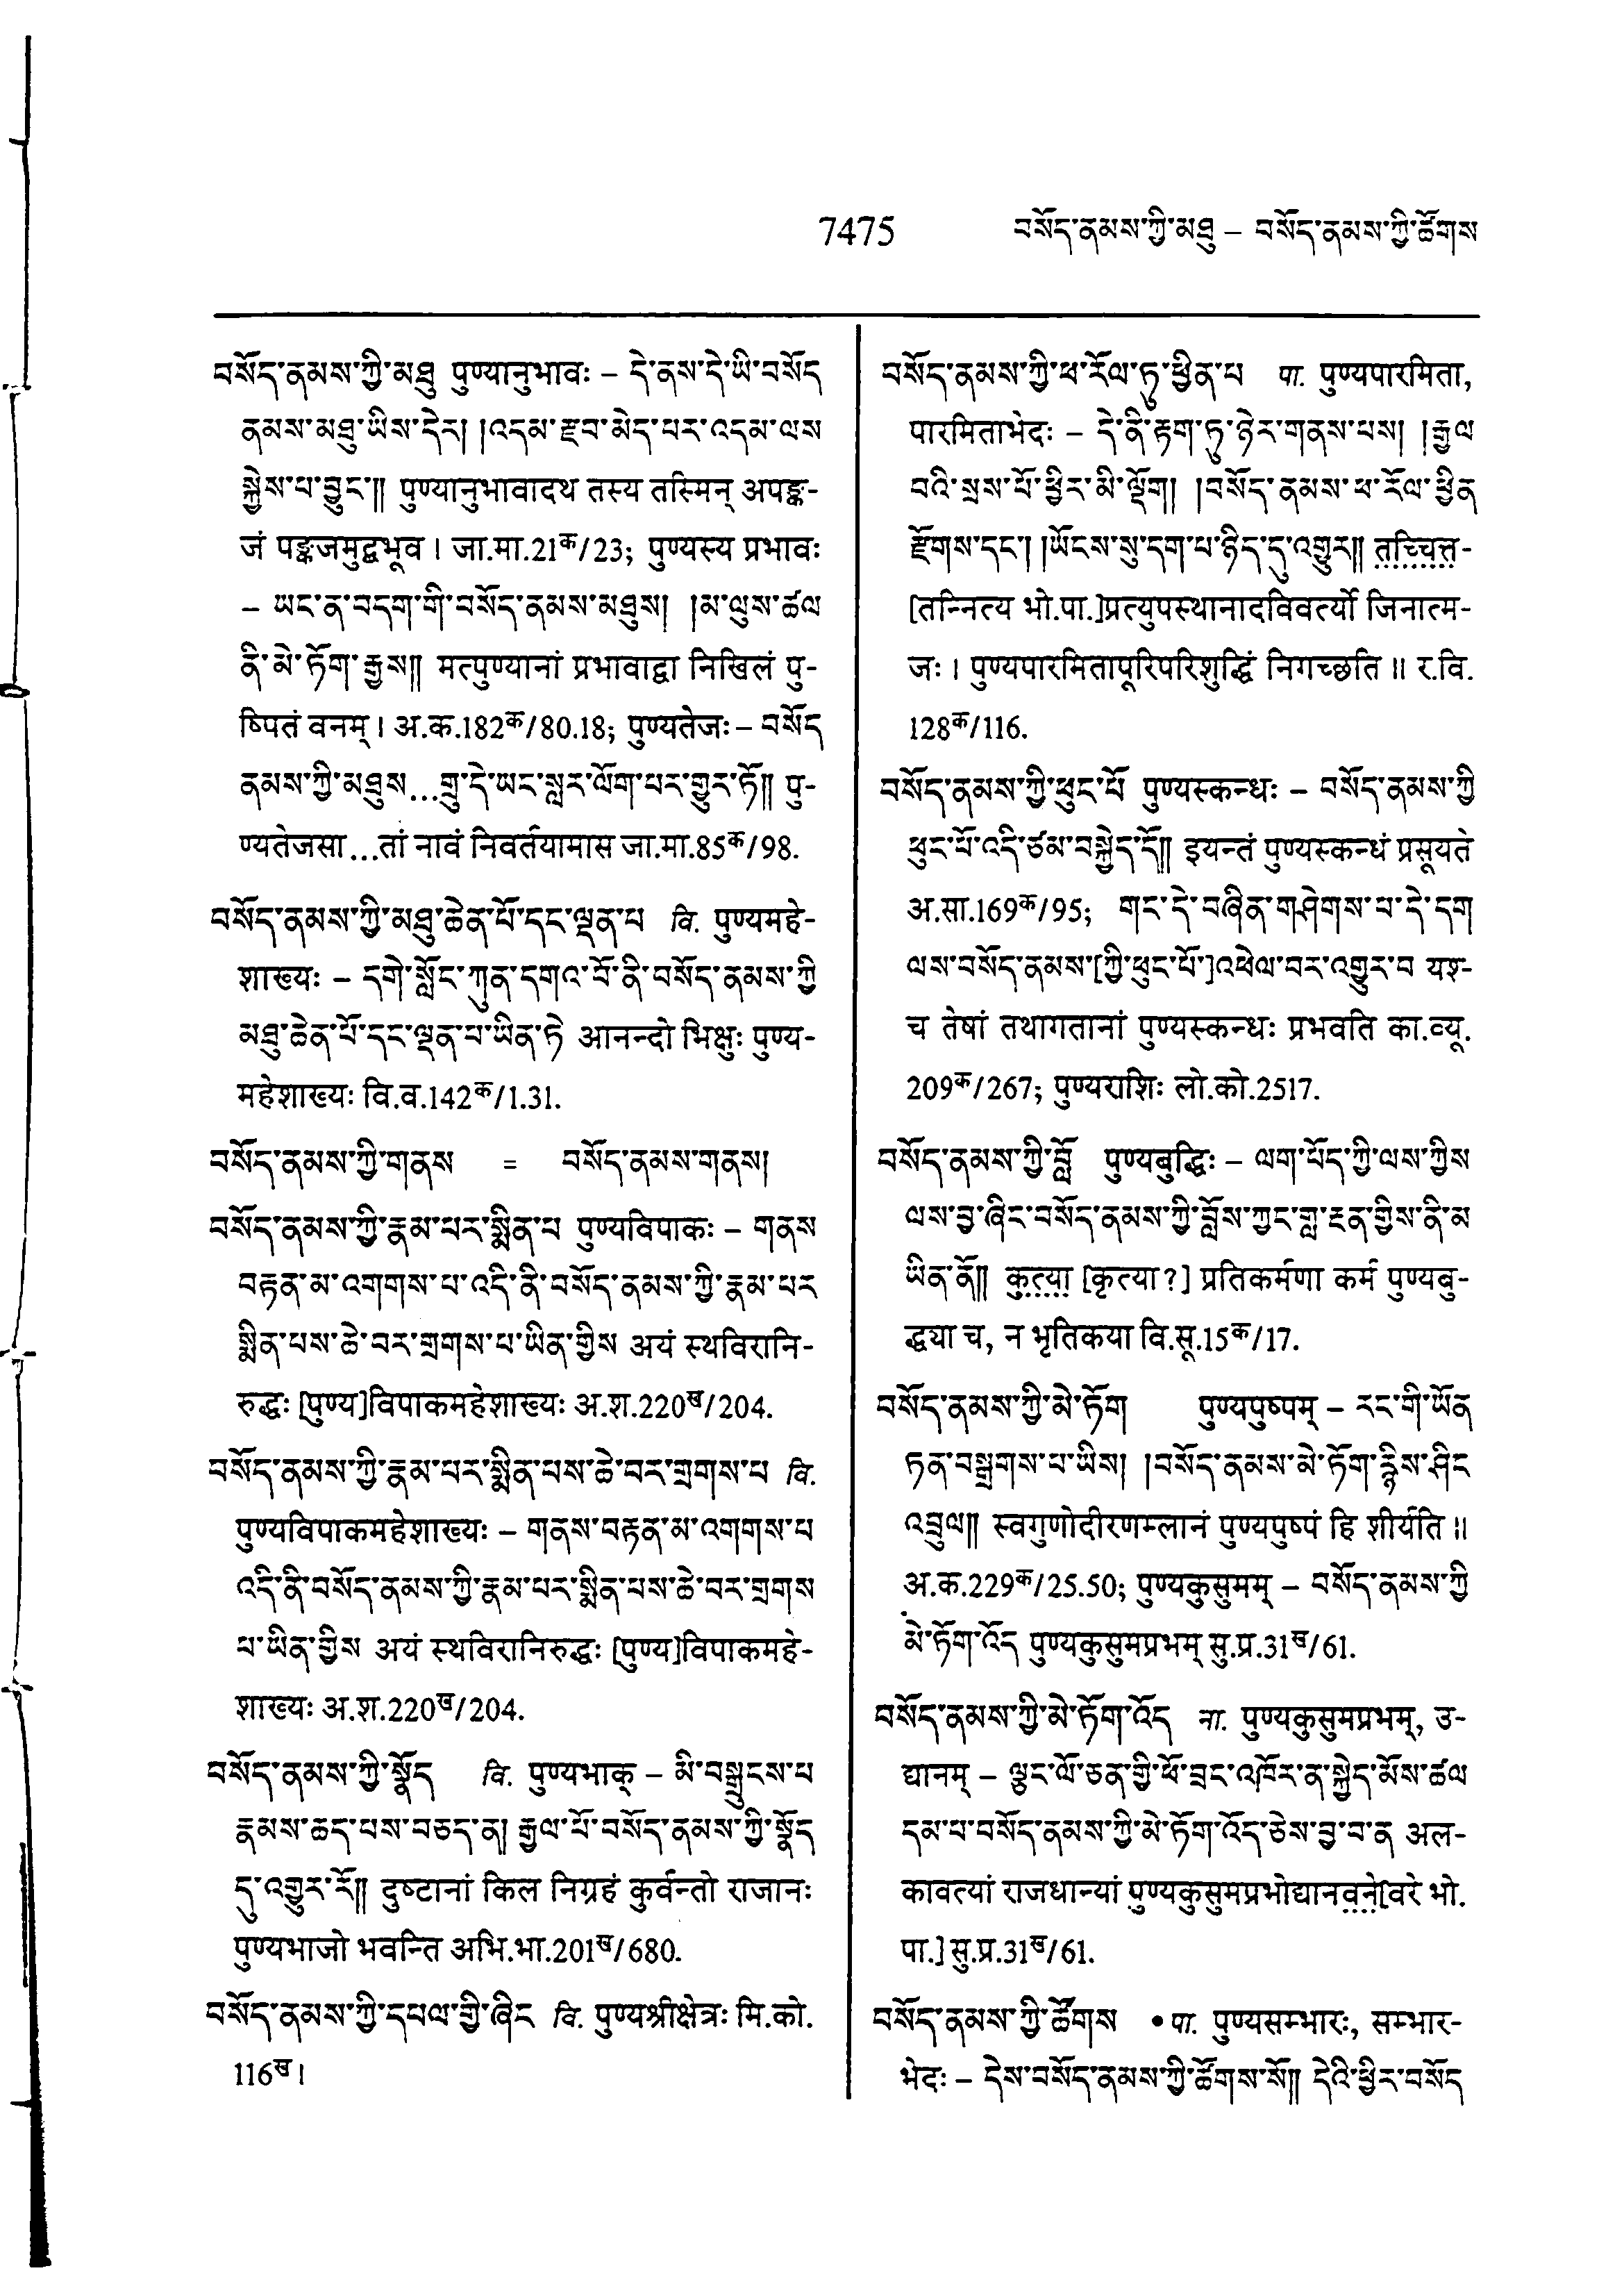 7475 བསོད་ནམས་ཀྱི་མཐུ – བསོད་ནམས་ཀྱི་ཚོགས
བསོད་ནམས་ཀྱི་མཐུ पुण्यानुभावः – དེ་ནས་དེ་ཡི་བསོད
ནམས་མཐུ་ཡིས་དེར། །འདམ་རྫབ་མེད་པར་འདམ་ལས
སྐྱེས་པ་བྱུང་༎ पुण्यानुभावादथ तस्य तस्मिन् अपङ्क-
जं पङ्कजमुद्बभूव । जा.मा.21क/23; पुण्यस्य प्रभावः
– ཡང་ན་བདག་གི་བསོད་ནམས་མཐུས། །མ་ལུས་ཚལ
ནི་མེ་ཏོག་རྒྱས༎ मत्पुण्यानां प्रभावाद्वा निखिलं पु-
ष्पितं वनम् । अ.क.182क/80.18; पुण्यतेजः – བསོད
ནམས་ཀྱི་མཐུས...གྲུ་དེ་ཡང་སླར་ལོག་པར་གྱུར་ཏོ༎ पु-
ण्यतेजसा...तां नावं निवर्तयामास जा.मा.85क/98.
བསོད་ནམས་ཀྱི་མཐུ་ཆེན་པོ་དང་ལྡན་པ वि. पुण्यमहे-
शाख्यः – དགེ་སློང་ཀུན་དགའ་བོ་ནི་བསོད་ནམས་ཀྱི
མཐུ་ཆེན་པོ་དང་ལྡན་པ་ཡིན་ཏེ आनन्दो भिक्षुः पुण्य-
महेशाख्यः वि.व.142क/1.31.
བསོད་ནམས་ཀྱི་གནས = བསོད་ནམས་གནས།
བསོད་ནམས་ཀྱི་རྣམ་པར་སྨིན་པ पुण्यविपाकः – གནས
བརྟན་མ་འགགས་པ་འདི་ནི་བསོད་ནམས་ཀྱི་རྣམ་པར
སྨིན་པས་ཆེ་བར་གྲགས་པ་ཡིན་གྱིས अयं स्थविरानि-
रुद्धः [पुण्य]विपाकमहेशाख्यः अ.श.220ख/204.
བསོད་ནམས་ཀྱི་རྣམ་པར་སྨིན་པས་ཆེ་བར་གྲགས་པ वि.
पुण्यविपाकमहेशाख्यः – གནས་བརྟན་མ་འགགས་པ
འདི་ནི་བསོད་ནམས་ཀྱི་རྣམ་པར་སྨིན་པས་ཆེ་བར་གྲགས
པ་ཡིན་གྱིས अयं स्थविरानिरुद्धः [पुण्य]विपाकमहे-
शाख्यः अ.श.220ख/204.
བསོད་ནམས་ཀྱི་སྣོད वि. पुण्यभाक् – མི་བསྲུངས་པ
རྣམས་ཆད་པས་བཅད་ན། རྒྱལ་པོ་བསོད་ནམས་ཀྱི་སྣོད
དུ་འགྱུར་རོ༎ दुष्टानां किल निग्रहं कुर्वन्तो राजानः
पुण्यभाजो भवन्ति अभि.भा.201ख/680.
བསོད་ནམས་ཀྱི་དཔལ་གྱི་ཞིང वि. पुण्यश्रीक्षेत्रः मि.को.
116ख ।
བསོད་ནམས་ཀྱི་ཕ་རོལ་ཏུ་ཕྱིན་པ पा. पुण्यपारमिता,
पारमिताभेदः – དེ་ནི་རྟག་ཏུ་ཉེར་གནས་པས། །རྒྱལ
བའི་སྲས་པོ་ཕྱིར་མི་ལྡོག། །བསོད་ནམས་ཕ་རོལ་ཕྱིན
རྫོགས་དང་། །ཡོངས་སུ་དག་པ་ཉིད་དུ་འགྱུར༎ तच्चित्त-
[तन्नित्य भो.पा.]प्रत्युपस्थानादविवर्त्यो जिनात्म-
जः । पुण्यपारमितापूरिपरिशुद्धिं निगच्छति ॥ र.वि.
128क/116.
བསོད་ནམས་ཀྱི་ཕུང་པོ पुण्यस्कन्धः – བསོད་ནམས་ཀྱི
ཕུང་པོ་འདི་ཙམ་བསྐྱེད་དོ༎ इयन्तं पुण्यस्कन्धं प्रसूयते
अ.सा.169क/95; གང་དེ་བཞིན་གཤེགས་པ་དེ་དག
ལས་བསོད་ནམས་[ཀྱི་ཕུང་པོ་]འཕེལ་བར་འགྱུར་བ यश्-
च तेषां तथागतानां पुण्यस्कन्धः प्रभवति का.व्यू.
209क/267; पुण्यराशिः लो.को.2517.
བསོད་ནམས་ཀྱི་བློ पुण्यबुद्धिः – ལག་པོད་ཀྱི་ལས་ཀྱིས
ལས་བྱ་ཞིང་བསོད་ནམས་ཀྱི་བློས་ཀྱང་གླ་རྔན་གྱིས་ནི་མ
ཡིན་ནོ༎ कुत्या [कृत्या?] प्रतिकर्मणा कर्म पुण्यबु-
द्ध्या च, न भृतिकया वि.सू.15क/17.
བསོད་ནམས་ཀྱི་མེ་ཏོག पुण्यपुष्पम् – རང་གི་ཡོན
ཏན་བསྒྲགས་པ་ཡིས། །བསོད་ནམས་མེ་ཏོག་རྙིས་ཤིང
འབྲུལ༎ स्वगुणोदीरणम्लानं पुण्यपुष्पं हि शीर्यति ॥
अ.क.229क/25.50; पुण्यकुसुमम् – བསོད་ནམས་ཀྱི
མེ་ཏོག་འོད पुण्यकुसुमप्रभम् सु.प्र.31ख/61.
བསོད་ནམས་ཀྱི་མེ་ཏོག་འོད ना. पुण्यकुसुमप्रभम्, उ-
द्यानम् – ལྕང་ལོ་ཅན་གྱི་ཕོ་བྲང་འཁོར་ན་སྐྱེད་མོས་ཚལ
དམ་པ་བསོད་ནམས་ཀྱི་མེ་ཏོག་འོད་ཅེས་བྱ་བ་ན अल-
कावत्यां राजधान्यां पुण्यकुसुमप्रभोद्यानवने[वरे भो.
पा.] सु.प्र.31ख/61.
བསོད་ནམས་ཀྱི་ཚོགས • पा. पुण्यसम्भारः, सम्भार-
भेदः – དེས་བསོད་ནམས་ཀྱི་ཚོགས་སོ༎ དེའི་ཕྱིར་བསོད